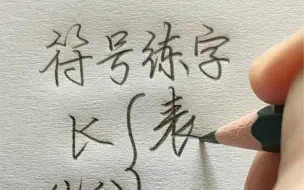 符号练字
长{表